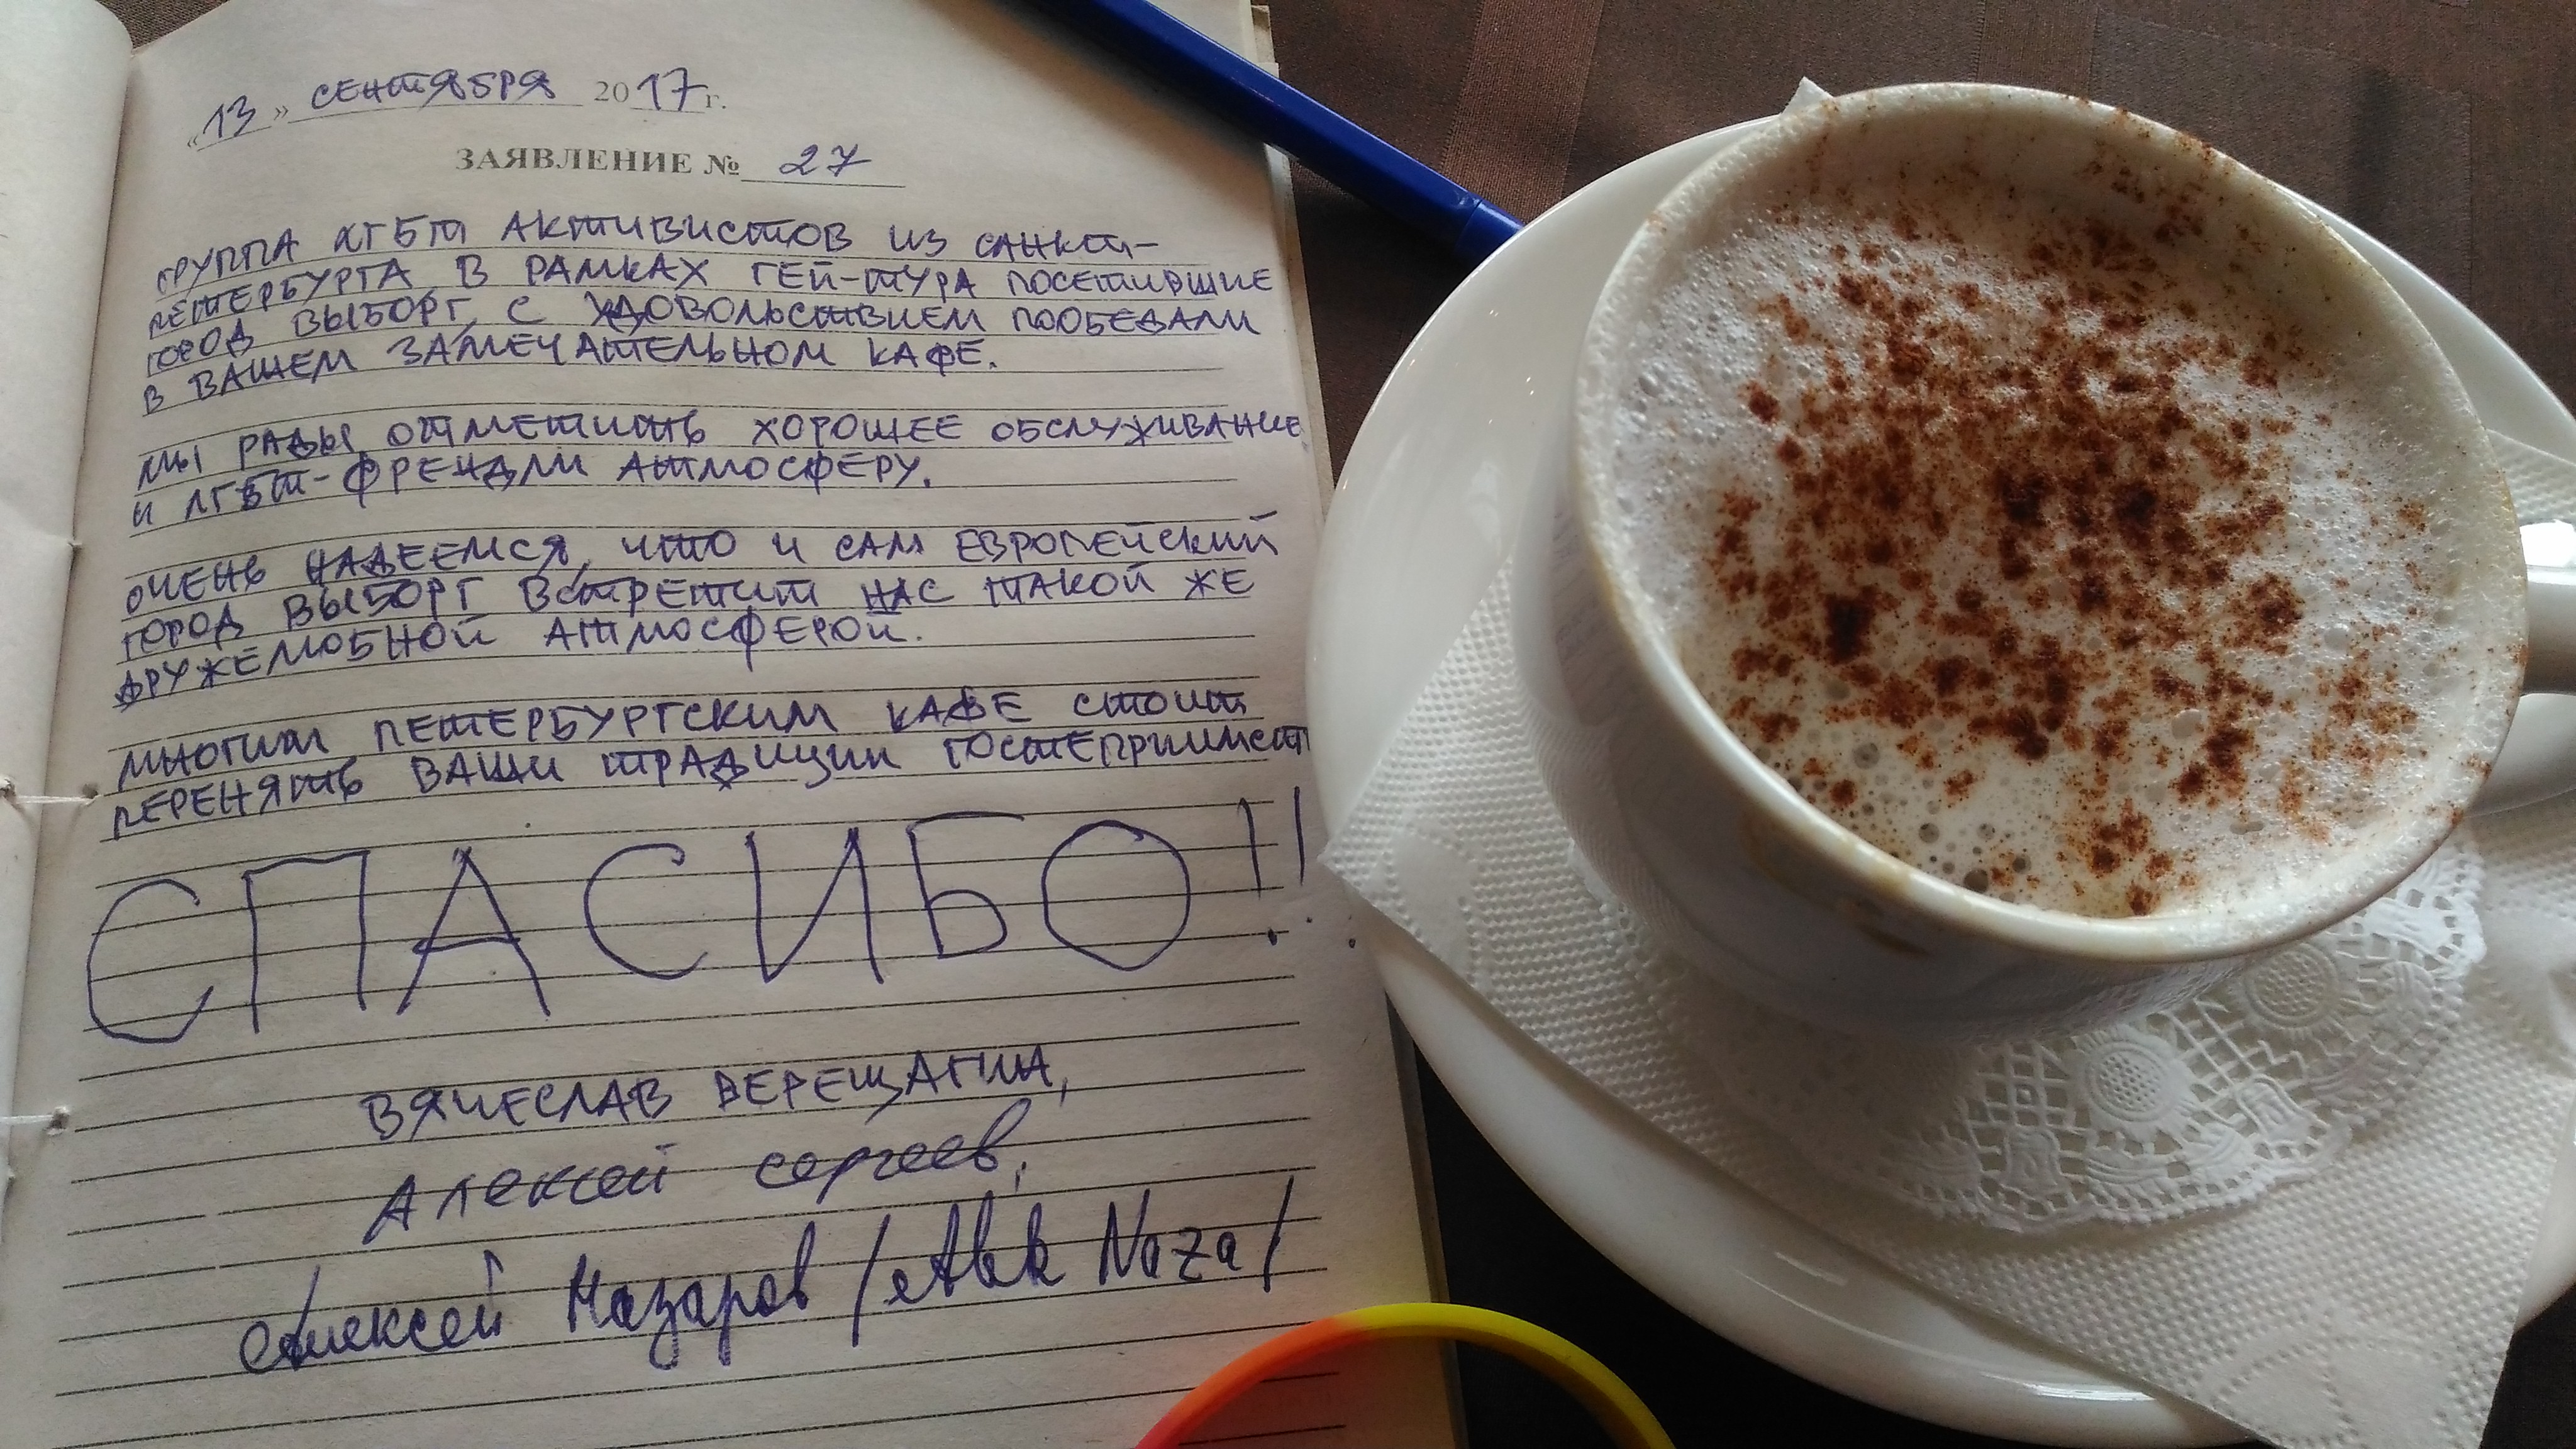 «13» СЕНТЯБРЯ 2017г.
ЗАЯВЛЕНИЕ № 27
ГРУППА ЛГБТ АКТИВИСТОВ ИЗ САНКТ-
ПЕТЕРБУРГА В РАМКАХ ГЕЙ-ТУРА ПОСЕТИВШИЕ
ГОРОД ВЫБОРГ, С УДОВОЛЬСТВИЕМ ПООБЕДАЛИ
В ВАШЕМ ЗАМЕЧАТЕЛЬНОМ КАФЕ.
МЫ РАДЫ ОТМЕТИТЬ ХОРОШЕЕ ОБСЛУЖИВАНИЕ
И ЛГБТ-ФРЕНДЛИ АТМОСФЕРУ.
ОЧЕНЬ НАДЕЕМСЯ, ЧТО И САМ ЕВРОПЕЙСКИЙ
ГОРОД ВЫБОРГ ВСТРЕТИТ НАС ТАКОЙ ЖЕ
ДРУЖЕЛЮБНОЙ АТМОСФЕРОЙ.
МНОГИМ ПЕТЕРБУРГСКИМ КАФЕ СТОИТ
ПЕРЕНЯТЬ ВАШИ ТРАДИЦИИ ГОСТЕПРИИМСТ
СПАСИБО!!
ВЯЧЕСЛАВ ВЕРЕЩАГИН,
Алексей Сергеев,
Алексей Назаров /Alek Naza/